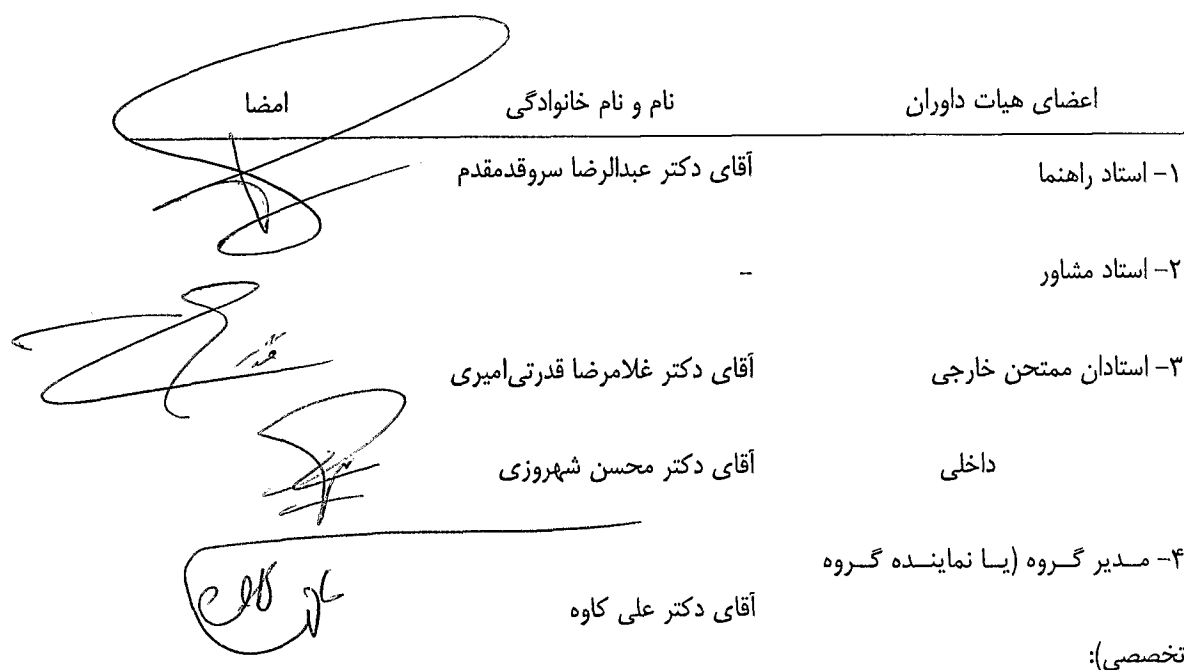 اعضای هیات داوران نام و نام خانوادگی امضا
۱- استاد راهنما آقای دکتر عبدالرضا سروقدمقدم
۲- استاد مشاور -
۳- استادان ممتحن خارجی آقای دکتر غلامرضا قدرتی‌امیری
داخلی آقای دکتر محسن شهروزی
۴- مـدیر گـروه (یـا نماینـده گـروه
آقای دکتر علی کاوه
تخصصی):